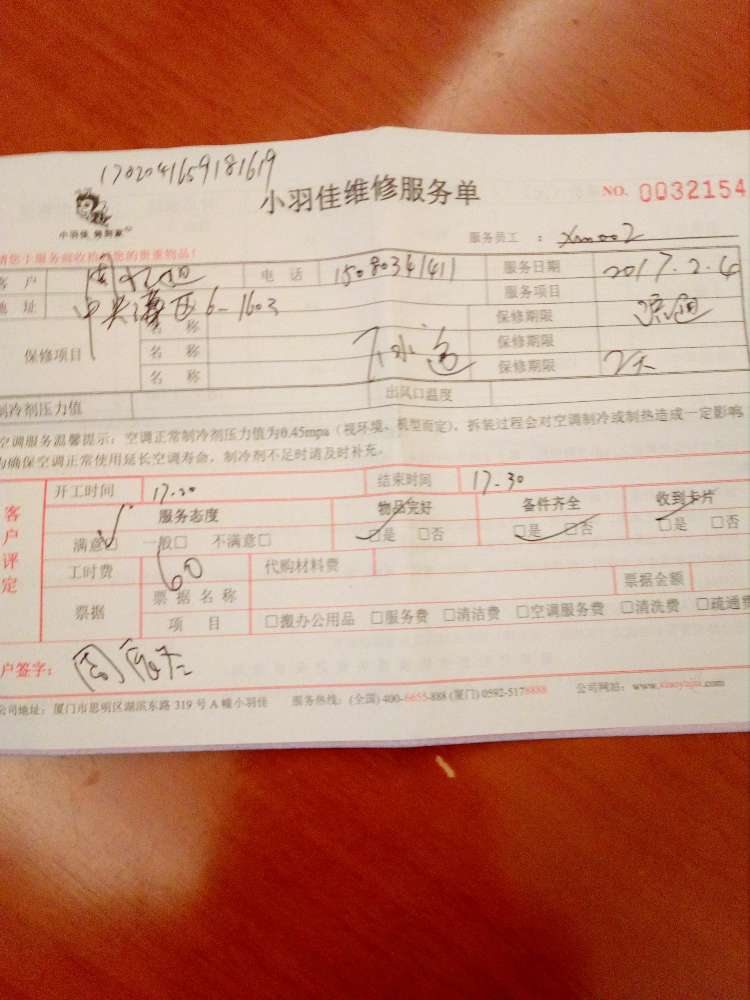 1702041659181619
小羽佳维修服务单 NO. 0032154
小羽佳 到家
服务员工 : Xm002
请您于服务前收拾 您的贵重物品!
客 户 电 话 15080341411 服务日期 2017.2.4
地 址 中央 区6-1603 服务项目 疏通
保修项目 名 称 下水道 保修期限
名 称 保修期限
名 称 保修期限 2天
制冷剂压力值 出风口温度
空调服务温馨提示:空调正常制冷剂压力值为0.45mpa(视环境、机型而定),拆装过程会对空调制冷或制热造成一定影响
为确保空调正常使用延长空调寿命,制冷剂不足时请及时补充。
客户评定
开工时间 17.00 结束时间 17.30
服务态度 物品完好 备件齐全 收到卡片
满意□ 一般□ 不满意□ □是 □否 □是 □否 □是 □否
工时费 60 代购材料费
票据 票据名称 票据金额
项 目 □搬办公用品 □服务费 □清洁费 □空调服务费 □清洗费 □疏通费
户签字:
公司地址:厦门市思明区湖滨东路 319 号 A 幢小羽佳 服务热线:(全国) 400-6655-888 (厦门) 0592-5178888 公司网站:www.xiaoyujia.com